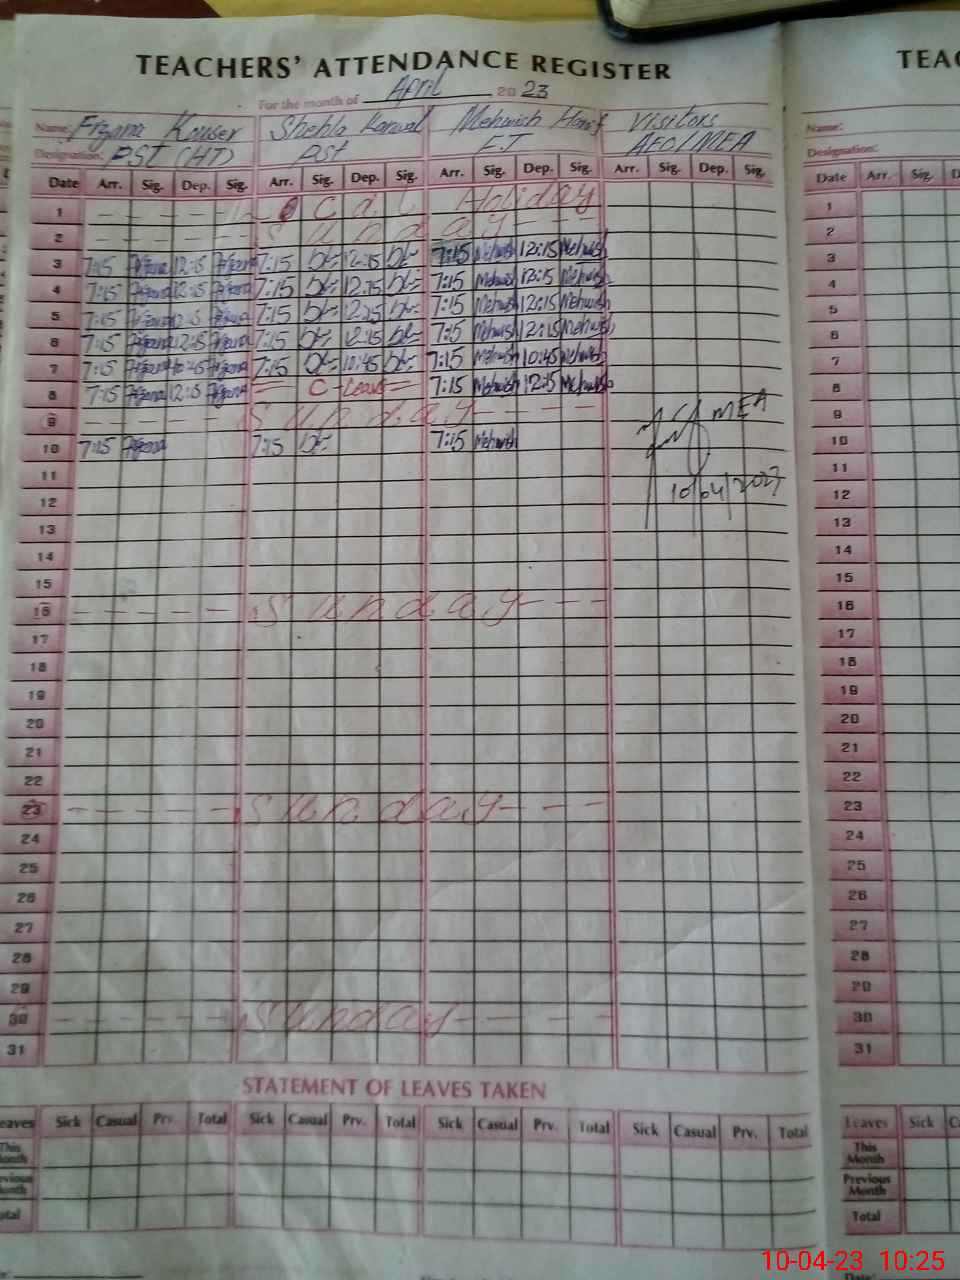 TEACHERS' ATTENDANCE REGISTER TEA
For the month of April 20 23
Name: Frzana Kouser Shehla Kanwal Mehwish Hanif Visitors Name:
Designation: P.ST (HT) PST E.T AEO/MEA Designation:
Date Arr. Sig. Dep. Sig. Arr. Sig. Dep. Sig. Arr. Sig. Dep. Sig. Arr. Sig. Dep. Sig. Date Arr. Sig.
1 Local Holiday 1
2 Sunday 2
3 7:15 Frzana 12:15 Frzana 7:15 12:15 7:15 Mehwish 12:15 Mehwish 3
4 7:15 Frzana 12:15 Frzana 7:15 12:15 7:15 Mehwish 12:15 Mehwish 4
5 7:15 Frzana 12:15 Frzana 7:15 12:15 7:15 Mehwish 12:15 Mehwish 5
6 7:15 Frzana 12:15 Frzana 7:15 12:15 7:15 Mehwish 12:15 Mehwish 6
7 7:15 Frzana 10:45 Frzana 7:15 10:45 7:15 Mehwish 10:45 Mehwish 7
8 7:15 Frzana 12:15 Frzana C - Leave 7:15 Mehwish 12:15 Mehwish 8
9 Sunday MEA 9
10 7:15 Frzana 7:15 7:15 Mehwish 10
11 10/04/2023 11
12 12
13 13
14 14
15 15
16 Sunday 16
17 17
18 18
19 19
20 20
21 21
22 22
23 Sunday 23
24 24
25 25
26 26
27 27
28 28
29 29
30 Sunday 30
31 31
STATEMENT OF LEAVES TAKEN
eaves Sick Casual Prv. Total Sick Casual Prv. Total Sick Casual Prv. Total Sick Casual Prv. Total Leaves Sick
This Month This Month
Previous Month Previous Month
Total Total
10-04-23 10:25